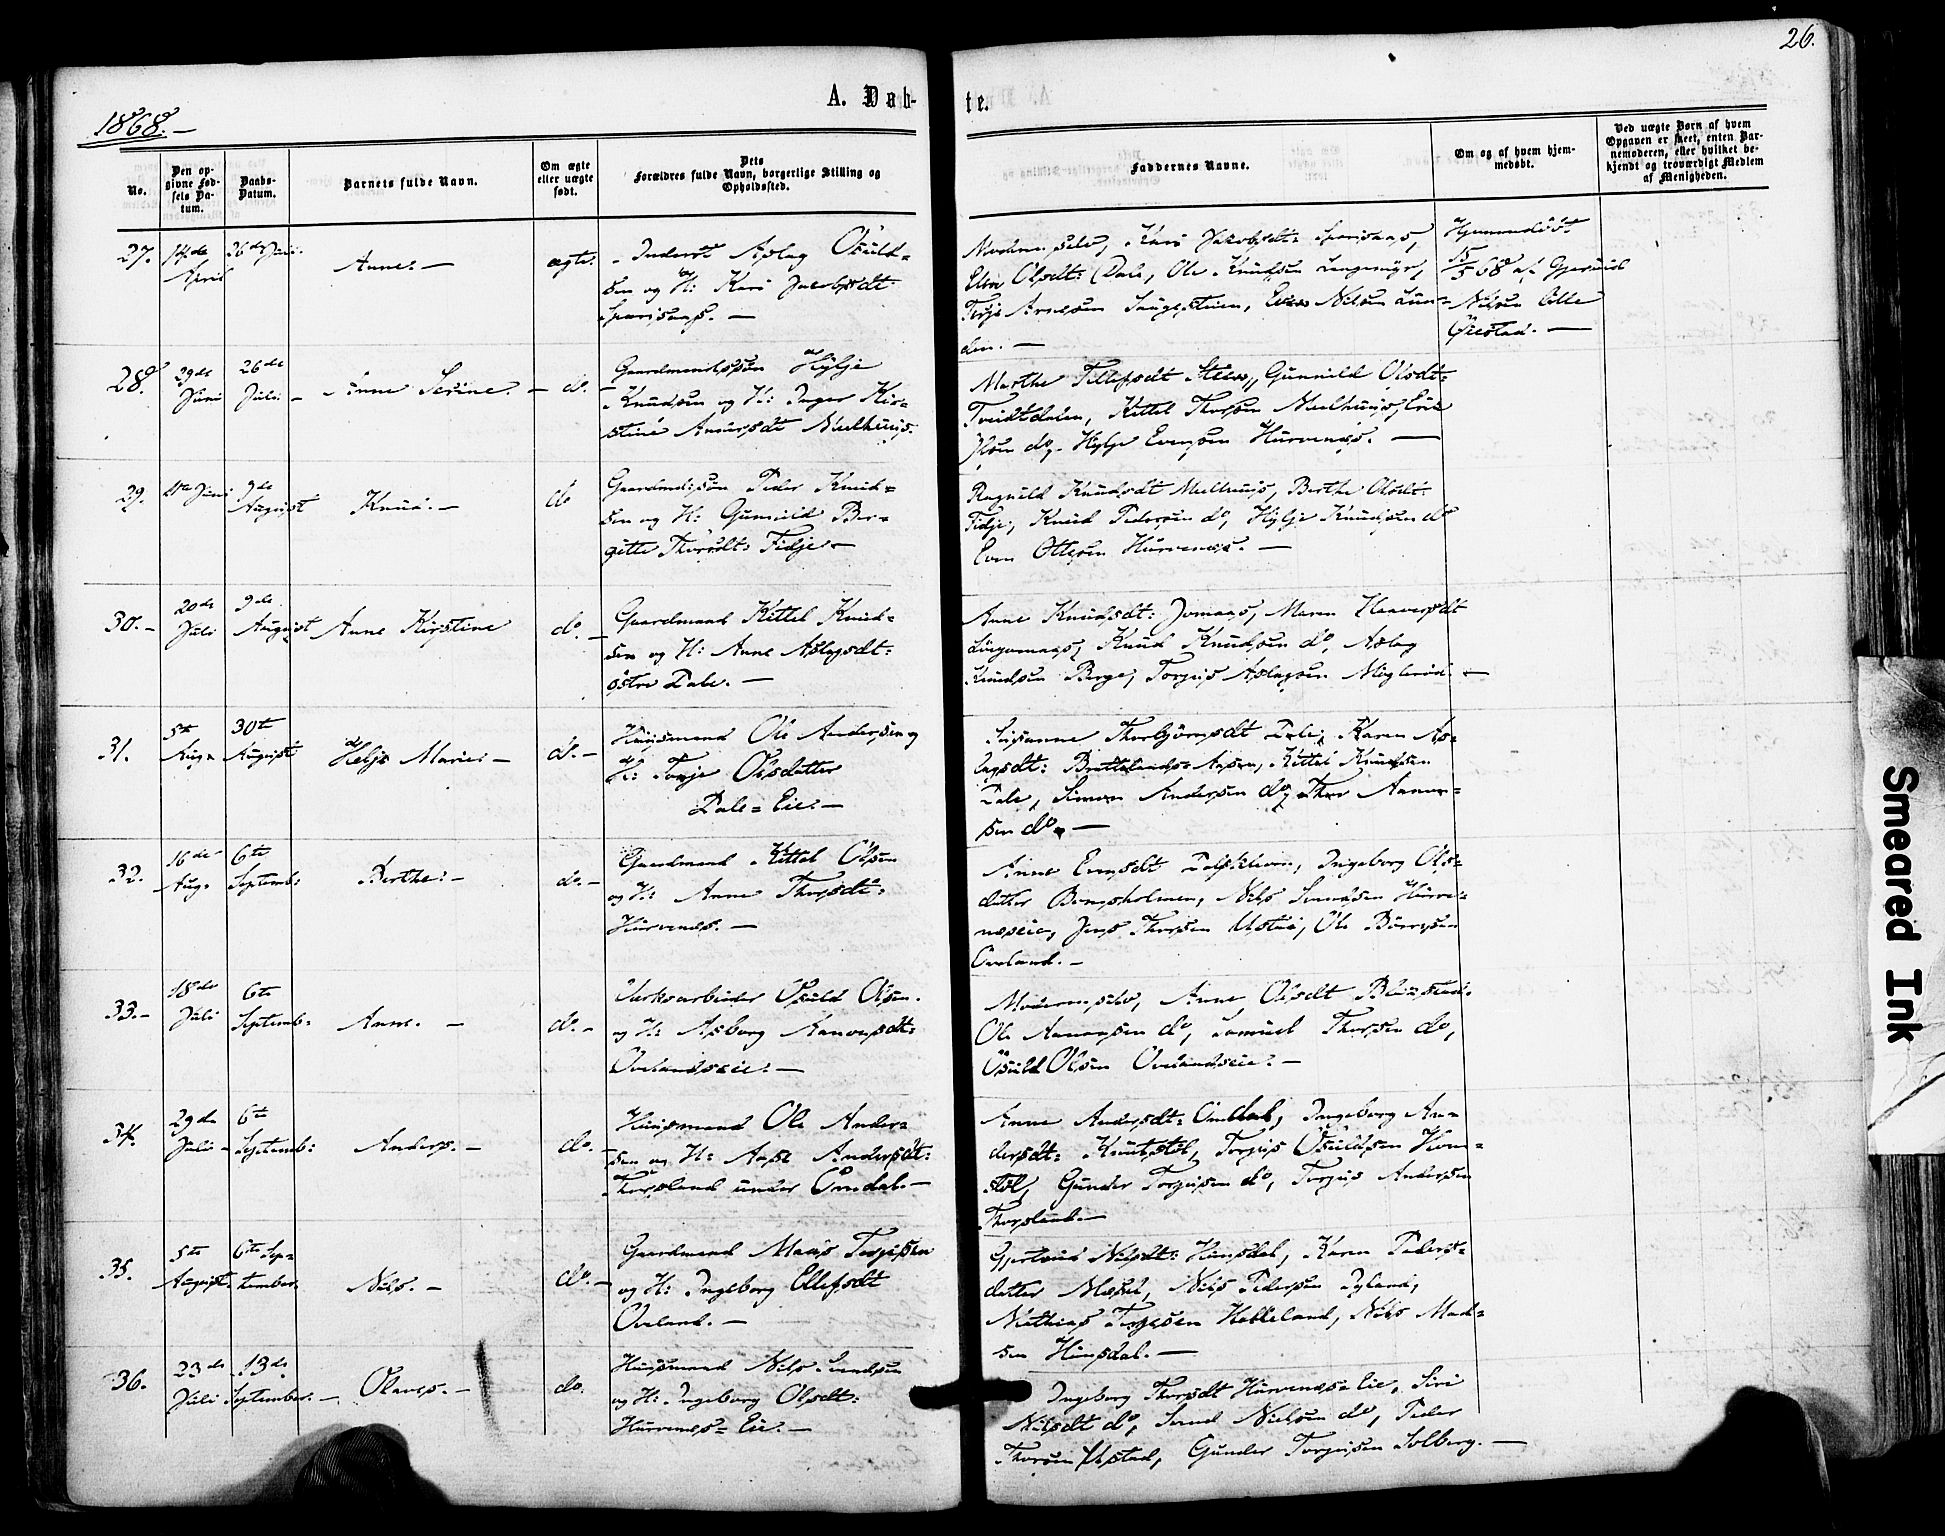 26.
A. Døb-
te.
1868. —
No.
Den op-
givne Fød-
sels Da-
tum.
Daabs-
Datum.
Barnets fulde Navn.
Om ægte
eller uægte
født.
Dets
Forældres fulde Navn, borgerlige Stilling og
Opholdssted.
Faddernes Navne.
Om og af hvem hjem-
medøbt.
Ved uægte Børn af hvem
Opgaven er skeet, enten Bar-
nemoderen, eller hvilket be-
kjendt og troværdigt Medlem
af Menigheden.
27.
14de
April
26de Juni
Anne. —
ægte.
Inderst Aslag Osuld=
sen og H: Kari Jacobsdt:
Sparsaas. —
Moderen selv, Kari Jakobsdt: Sparsaas,
Elen Olsdt: Dale, Ole Knudsen Langemyr,
Terje Arnesen Naugestuen, Even Nilsen Lun=
den. —
Hjemmedøbt
15/5 68 af Gjeruld
Nilsen Lille
Øiestad. —
28.
29de
Juni
26de
Juli —
Anne Serine. —
do.
Gaardmandssøn Hylje
Knudsen og H: Inger Kir=
stine Andersdt Mælhuus.
Marthe Tellefsdt Steen, Gunnild Olsdt:
Tveidtdalen, Kittel Thorsen Mælhuus, Erik
do, Hylje Evensen Hurvenæs. —
29.
Juni
9de
August
Knud. —
do
Gaardmdssøn Peder Knud=
sen og H: Gunnild Bir=
gitte Thorsdt: Fidje —
Ragnild Knudsdt Mælhuus, Berthe Olsdt:
Fidje, Knud Pedersen do, Hylje Knudsen do
Even Ottesen Hurvenæs. —
30. —
20de
Juli
9de
August
Anne Kirstine
do. —
Gaardmand Kittel Knud=
sen og H: Anne Aslagsdt:
østre Dale. —
Anne Knudsdt: Jomaas, Maren Haaversdt
Lingumaas, Knud Knudsen do, Aslag
Knudsen Berge, Torjus Aslagsen Møglerød. —
31.
5te
Aug.
30te
August
Helje Marie. —
do. —
Huusmand Ole Andersen og
H: Torje Olsdatter
Dale=Eie. —
Susanne Thorbjørnsdt Dale, Karen As=
lagsdt: Brattelands=Aasen, Kittel Knudsen
Dale, Simon Andersen do, Thor Aanon=
sen do. —
32.
16de
Aug.
6te
Septemb:
Berthe. —
do. —
Gaardmand Kittel Olsen
og H: Anne Thorsdt:
Hurvenæs. —
Anne Evensdt Dalskleven, Ingeborg Ols=
datter Bomsholmen, Nils Svendsen Hurve=
næseie, Jens Thorsen Ustad, Ole Børresen
Overland. —
33. —
18de
Juli
6te
Septemb:
Anne. —
do. —
Værksarbeider Osuld Olsen.
og H: Asborg Aanonsdt:
Overlandseie. —
Moderen selv, Anne Olsdt
Ole Aanonsen do, Samuel Thorsen do,
Osuld Olsen Overlandseie. —
34.
29de
Juli —
6te
Septemb:
Anders. —
do. —
Huusmand Ole Ander=
sen og H: Aase Andersdt:
Thorsland under Omdal. —
Anne Andersdt: Omdal, Ingeborg An=
dersdt: Knutstøl, Torjus Osuldsen Hom=
støl, Gunder Torjusen do, Torjus Andersen
Thorsland. —
35.
5te
August.
6te Sep=
tember.
Nils. —
do. —
Gaardmand Mads Terjesen
og H: Ingeborg Ellefsdt
Overland. —
Gjertrud Nilsdt: Hunsdal, Karen Peders=
datter Møsel, Nils Pedersen Dyland,
Mathias Terjesen Hekkeland, Nils Mad=
sen Hunsdal. —
36.
23de
Juli
13de
September. —
Olaves. —
do.
Huusmand Nils Svendsen
og H: Ingeborg Olsdt:
Hurvenæs=Eie. —
Ingeborg Thorsdt Hurvenæs=Eie, Siri
Nilsdt do, Svend Nielsen do, Peder
Thorsen Ustad, Gunder Torjusen Solberg. —
Smeared Ink